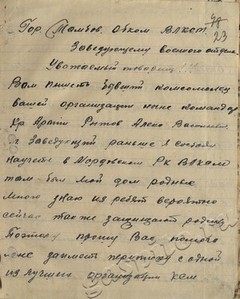 Гор. Тамбов, Обком ВЛКСМ.
23
Заведующему военного отдела
Уважаемый товарищ!
Вам пишет бывший комсомолец
вашей организации ныне командир
Кр Армии
Заведующий раньше я
в Мордовском Рк ВЛКСМ
там был мой дом родные
много знаю из ребят вероятно
сейчас так же защищают родину
Поэтому прошу Вас
мне завести переписку с одной
из лучших организаций